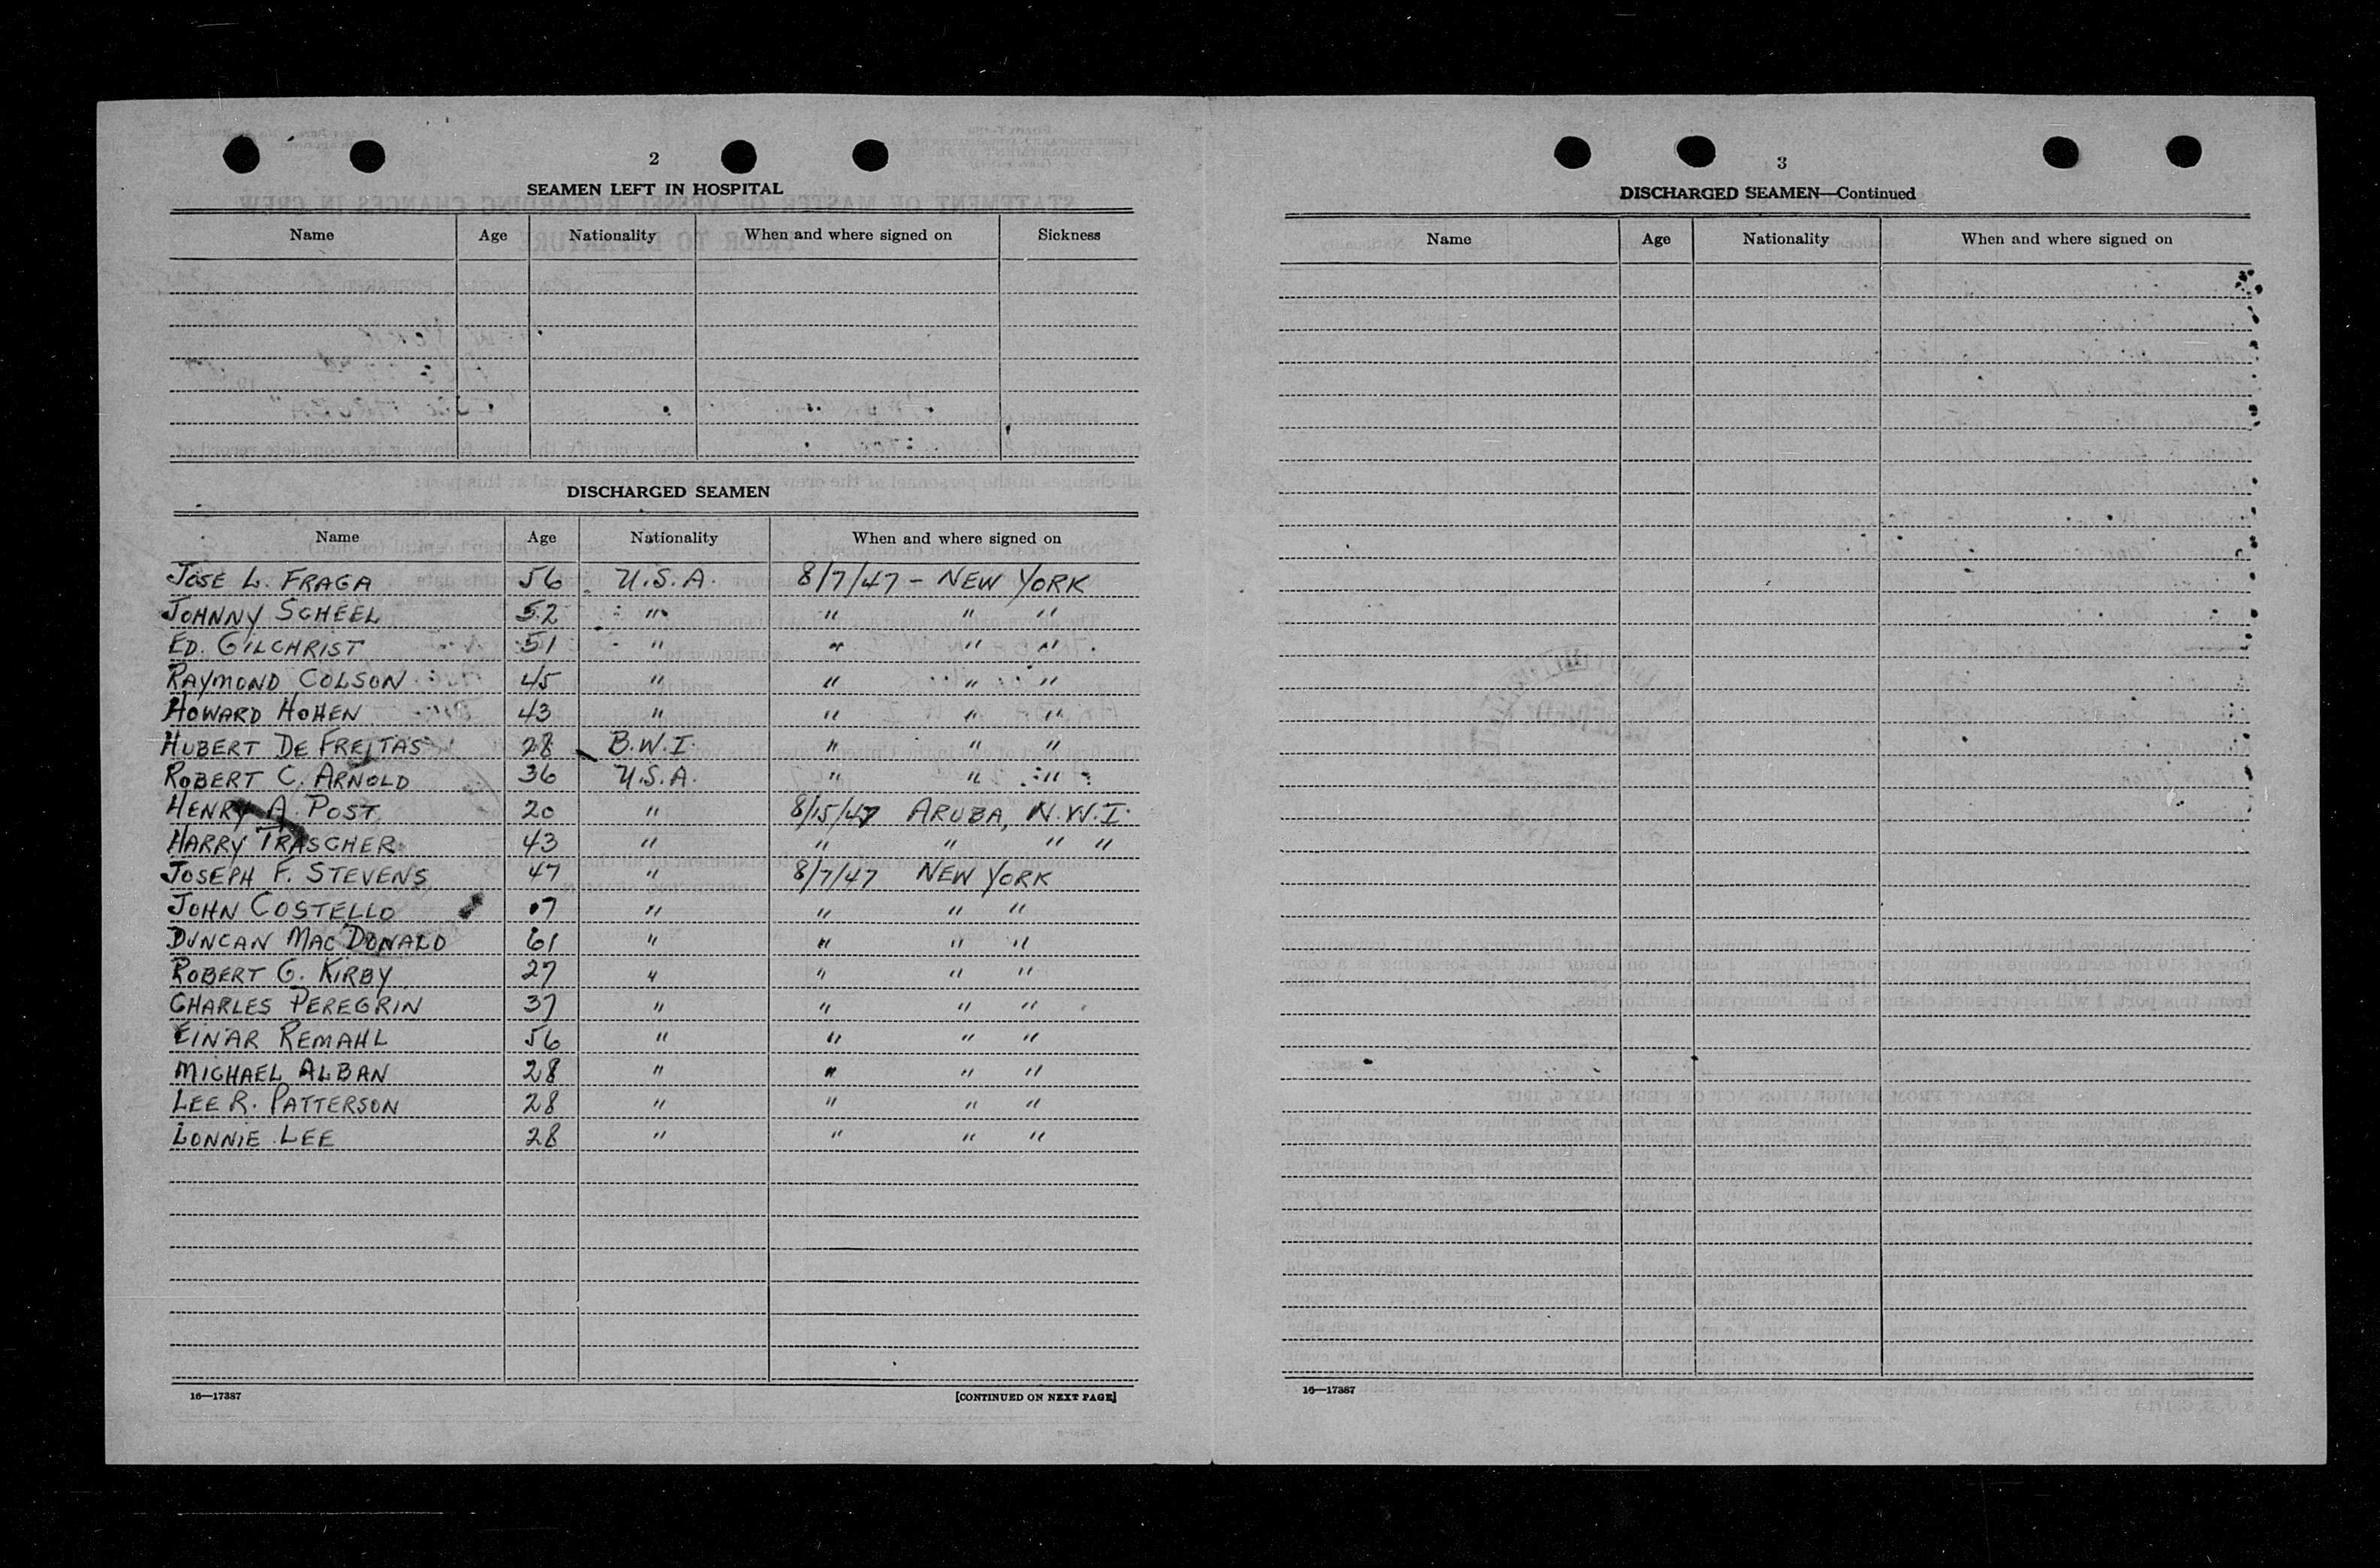 2
SEAMEN LEFT IN HOSPITAL
Name Age Nationality When and where signed on Sickness
DISCHARGED SEAMEN
Name Age Nationality When and where signed on
JOSE L. FRAGA 56 U.S.A. 8/7/47 - NEW YORK
JOHNNY SCHEEL 52 " " " "
ED. GILCHRIST 51 " " " "
RAYMOND COLSON 45 " " " "
HOWARD HOHEN 43 " " " "
HUBERT DE FREITAS 28 B.W.I. " " "
ROBERT C. ARNOLD 36 U.S.A. " " "
HENRY A. POST 20 " 8/15/47 ARUBA, N.W.I.
HARRY TRASCHER 43 " " " " "
JOSEPH F. STEVENS 47 " 8/7/47 NEW YORK
JOHN COSTELLO " " " "
DUNCAN MAC DONALD 61 " " " "
ROBERT G. KIRBY 27 " " " "
CHARLES PEREGRIN 37 " " " "
EINAR REMAHL 56 " " " "
MICHAEL ALBAN 28 " " " "
LEE R. PATTERSON 28 " " " "
LONNIE LEE 28 " " " "
16—17387 [CONTINUED ON NEXT PAGE]
3
DISCHARGED SEAMEN—Continued
Name Age Nationality When and where signed on
16—17387